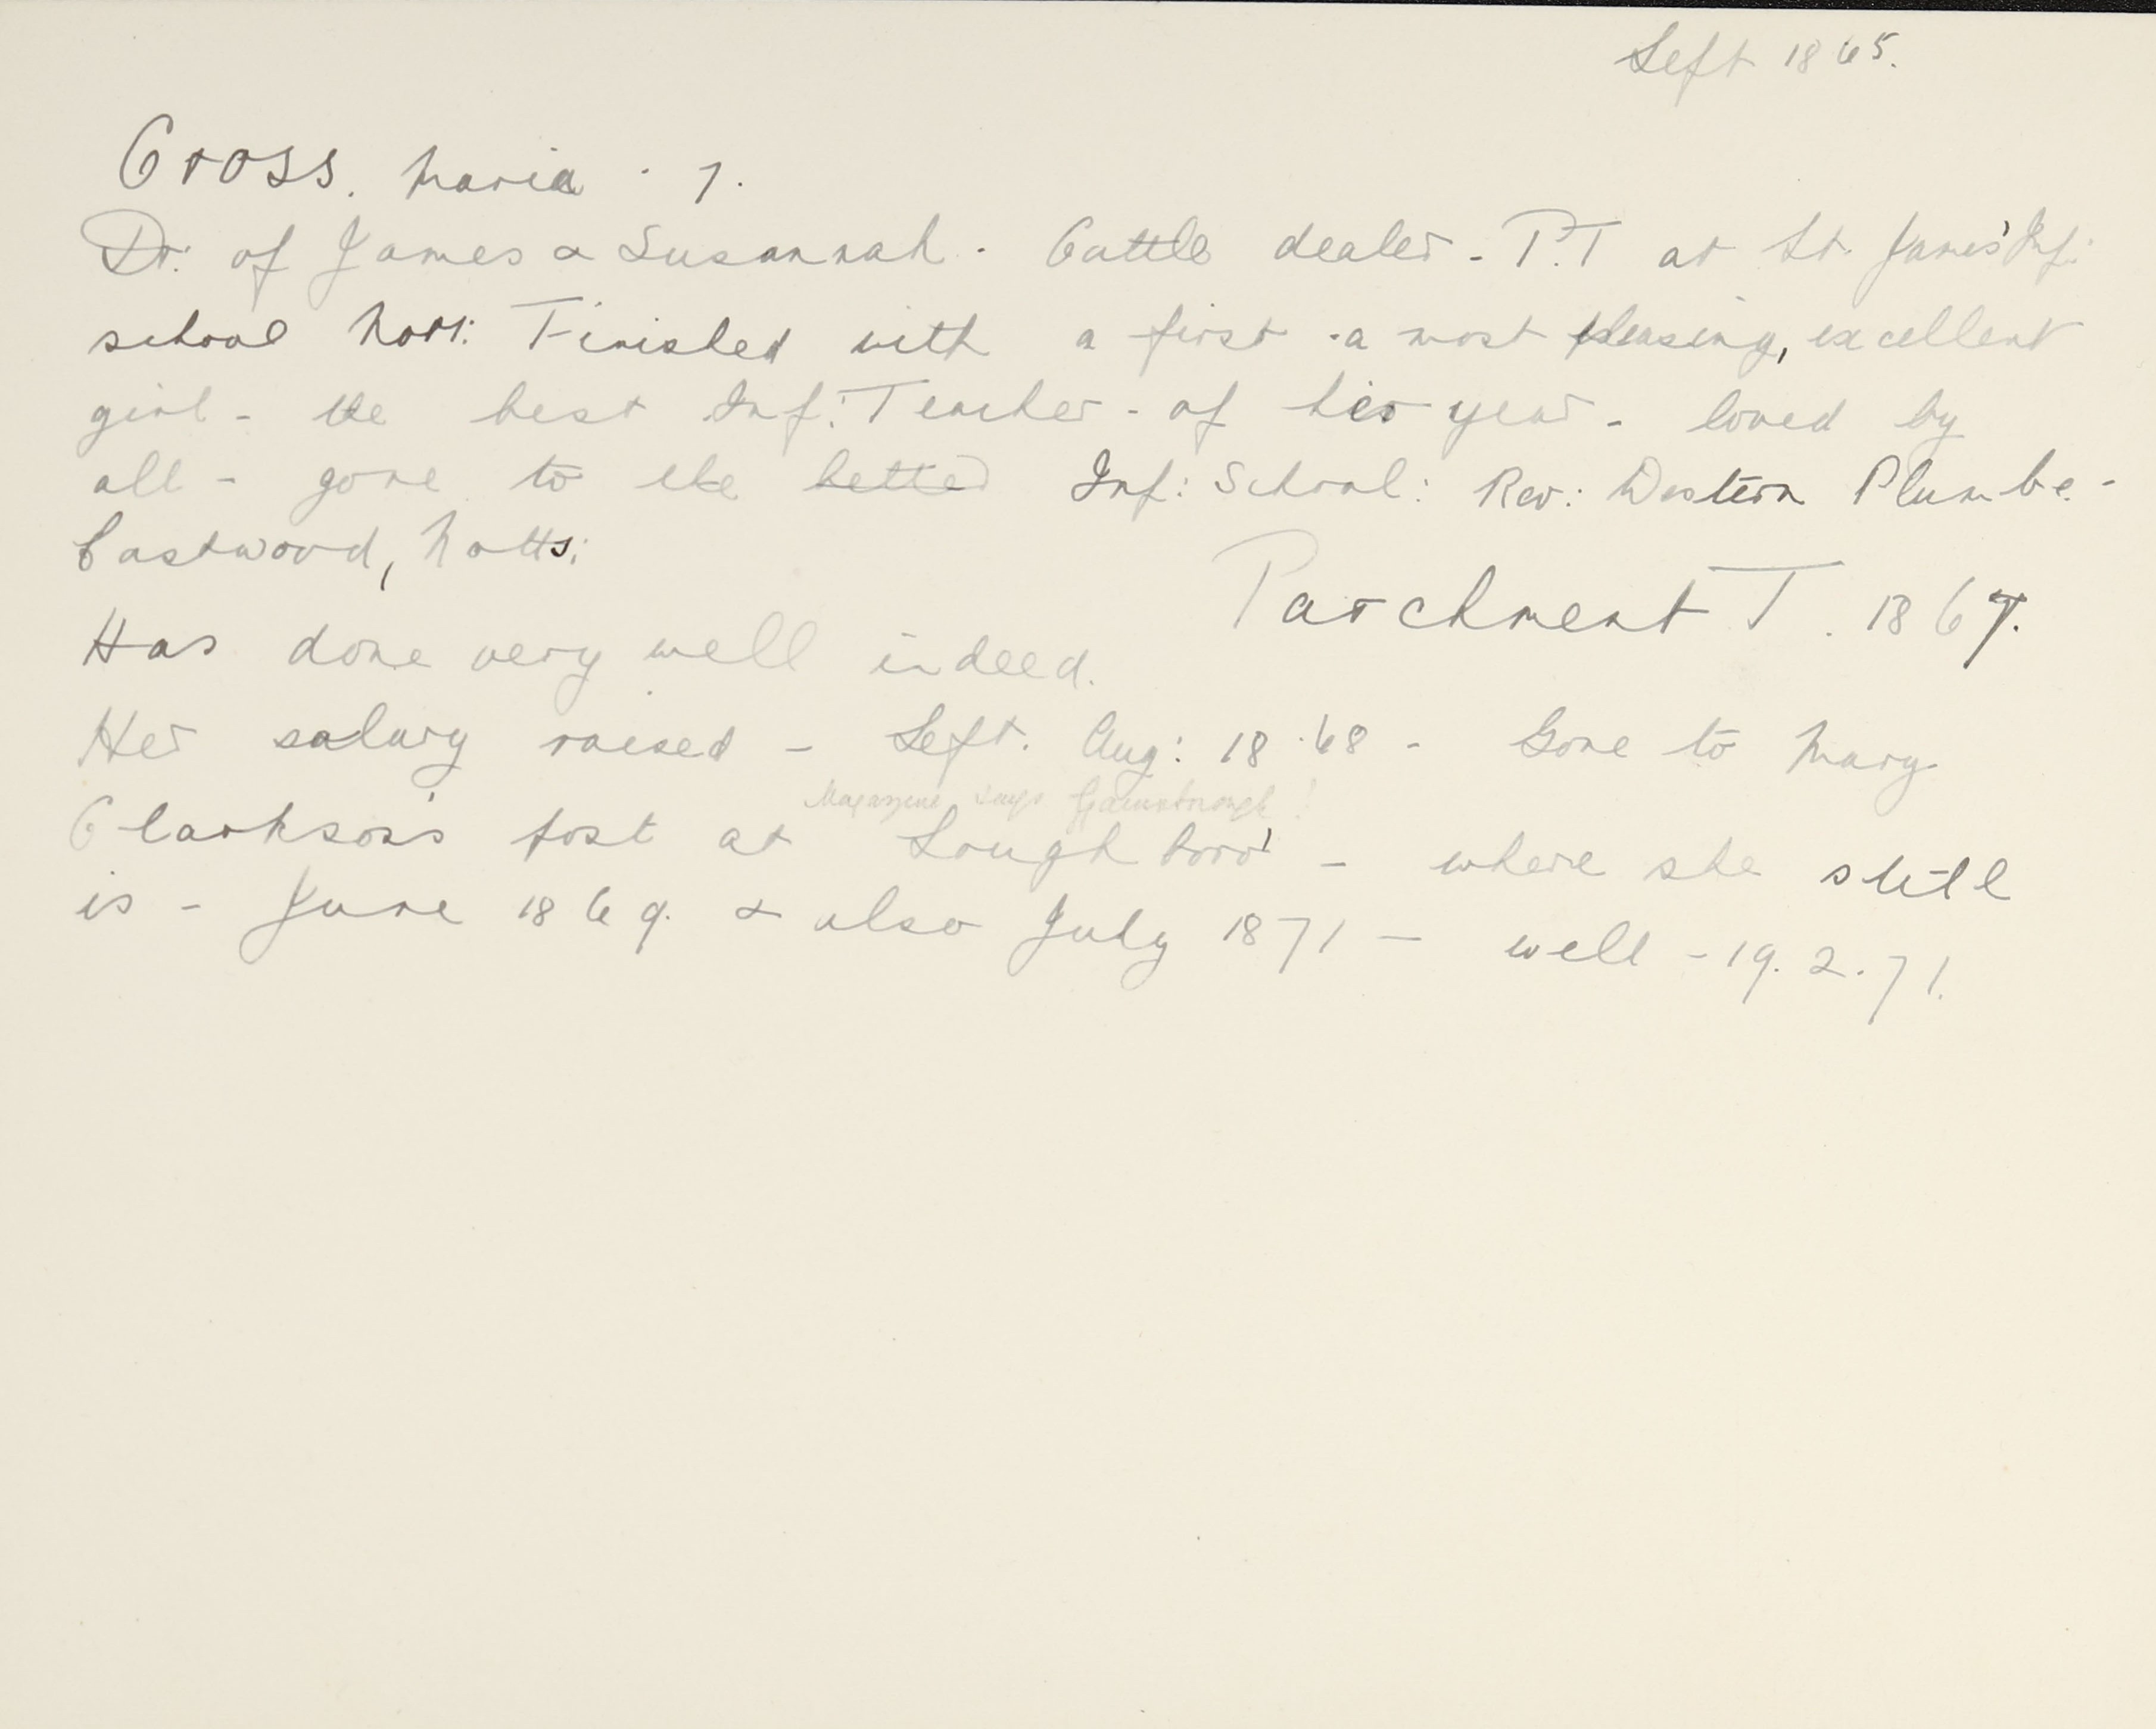 Left 1865.
Cross. Maria . 7.
Dr. of James & Susannah. Cattle dealer - P.T at St. James' Inf:
school Nott: Finished with a first - a most pleasing, excellent
girl - the best Inf: Teacher - of her year - loved by
all - gone to the better Inf: School: Rev: Western Plumbe. -
Eastwood, Notts:
Parchment T. 1867.
Has done very well indeed.
Her salary raised - Left. Aug: 1868 - Gone to Mary
Magazine says Gainsborough!
Clarkson's post at Loughboro' - where she still
is - June 1869. & also July 1871 - well - 19.2.71.